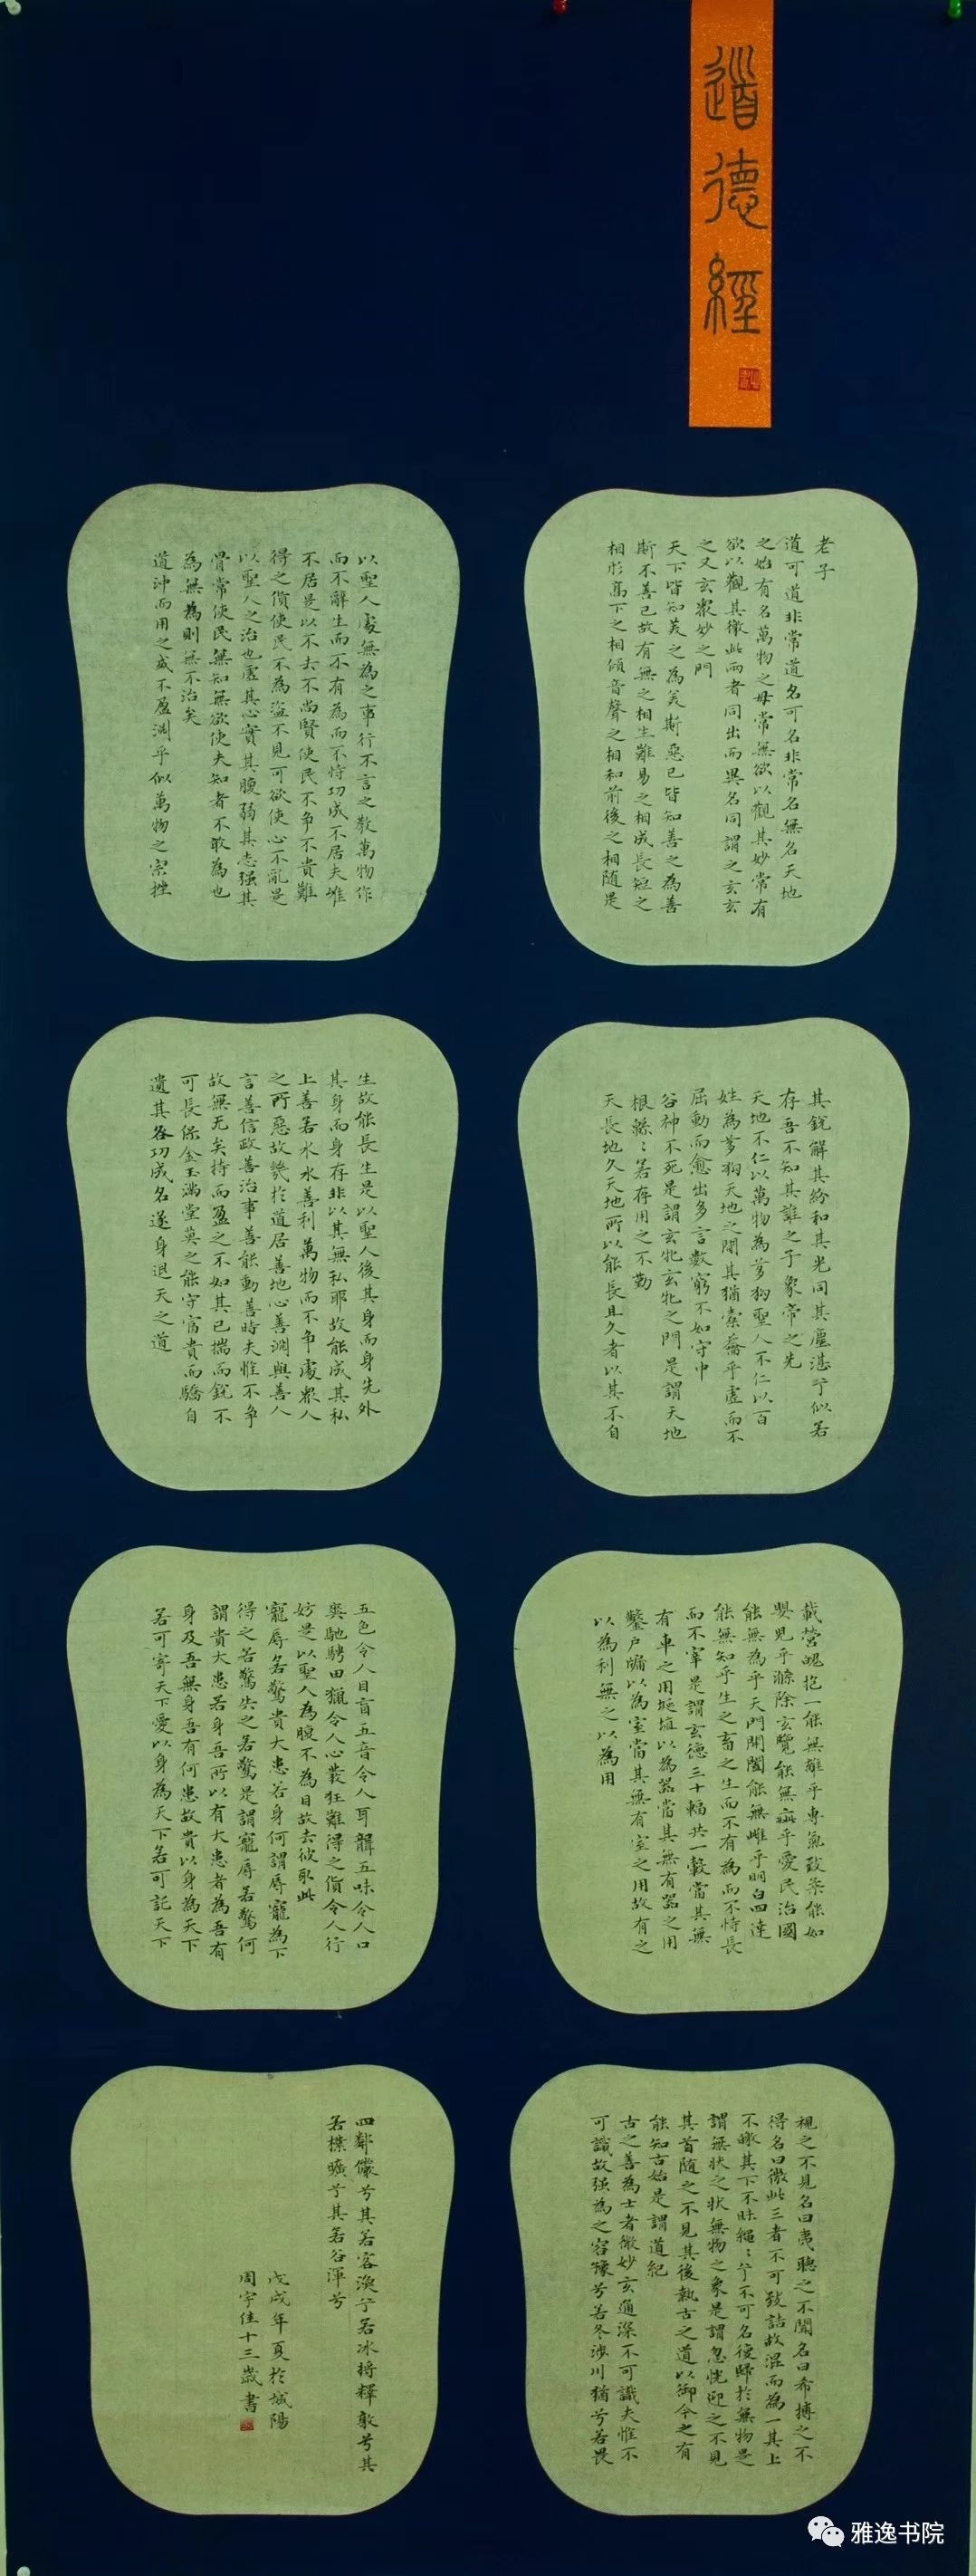 道德經
老子
道可道非常道名可名非常名無名天地
之始有名萬物之母常無欲以觀其妙常有
欲以觀其徼此兩者同出而異名同謂之玄玄
之又玄衆妙之門
天下皆知美之為美斯惡已皆知善之為善
斯不善已故有無之相生難易之相成長短之
相形高下之相傾音聲之相和前後之相隨是
以聖人處無為之事行不言之教萬物作
而不辭生而不有為而不恃功成不居夫惟
不居是以不去不尚賢使民不争不貴難
得之貨使民不為盗不見可欲使心不亂是
以聖人之治也虛其心實其腹弱其志强其
骨常使民無知無欲使夫知者不敢為也
為無為則無不治矣
道沖而用之或不盈淵乎似萬物之宗挫
其銳解其紛和其光同其塵湛兮似若
存吾不知其誰之子象帝之先
天地不仁以萬物為芻狗聖人不仁以百
姓為芻狗天地之間其猶橐籥乎虛而不
屈動而愈出多言數窮不如守中
谷神不死是謂玄牝玄牝之門是謂天地
根綿〻若存用之不勤
天長地久天地所以能長且久者以其不自
生故能長生是以聖人後其身而身先外
其身而身存非以其無私耶故能成其私
上善若水水善利萬物而不争處衆人
之所惡故幾於道居善地心善淵與善人
言善信政善治事善能動善時夫惟不争
故無尤矣持而盈之不如其已揣而銳不
可長保金玉滿堂莫之能守富貴而驕自
遺其咎功成名遂身退天之道
載營魄抱一能無離乎專氣致柔能如
嬰兒乎滌除玄覽能無疵乎愛民治國
能無為乎天門開闔能無雌乎明白四達
能無知乎生之畜之生而不有為而不恃長
而不宰是謂玄德三十輻共一轂當其無
有車之用埏埴以為器當其無有器之用
鑿戶牖以為室當其無有室之用故有之
以為利無之以為用
五色令人目盲五音令人耳聾五味令人口
爽馳騁田獵令人心發狂難得之貨令人行
妨是以聖人為腹不為目故去彼取此
寵辱若驚貴大患若身何謂辱寵為下
得之若驚失之若驚是謂寵辱若驚何
謂貴大患若身吾所以有大患者為吾有
身及吾無身吾有何患故貴以身為天下
若可寄天下愛以身為天下若可託天下
視之不見名曰夷聽之不聞名曰希搏之不
得名曰微此三者不可致詰故混而為一其上
不皦其下不昧繩〻兮不可名復歸於無物是
謂無狀之狀無物之象是謂忽恍迎之不見
其首隨之不見其後執古之道以御今之有
能知古始是謂道紀
古之善為士者微妙玄通深不可識夫惟不
可識故强為之容豫兮若冬涉川猶兮若畏
四鄰儼兮其若客渙兮若冰將釋敦兮其
若樸曠兮其若谷渾兮
戊戌年夏於城陽
周宇佳十三歲書
雅逸书院